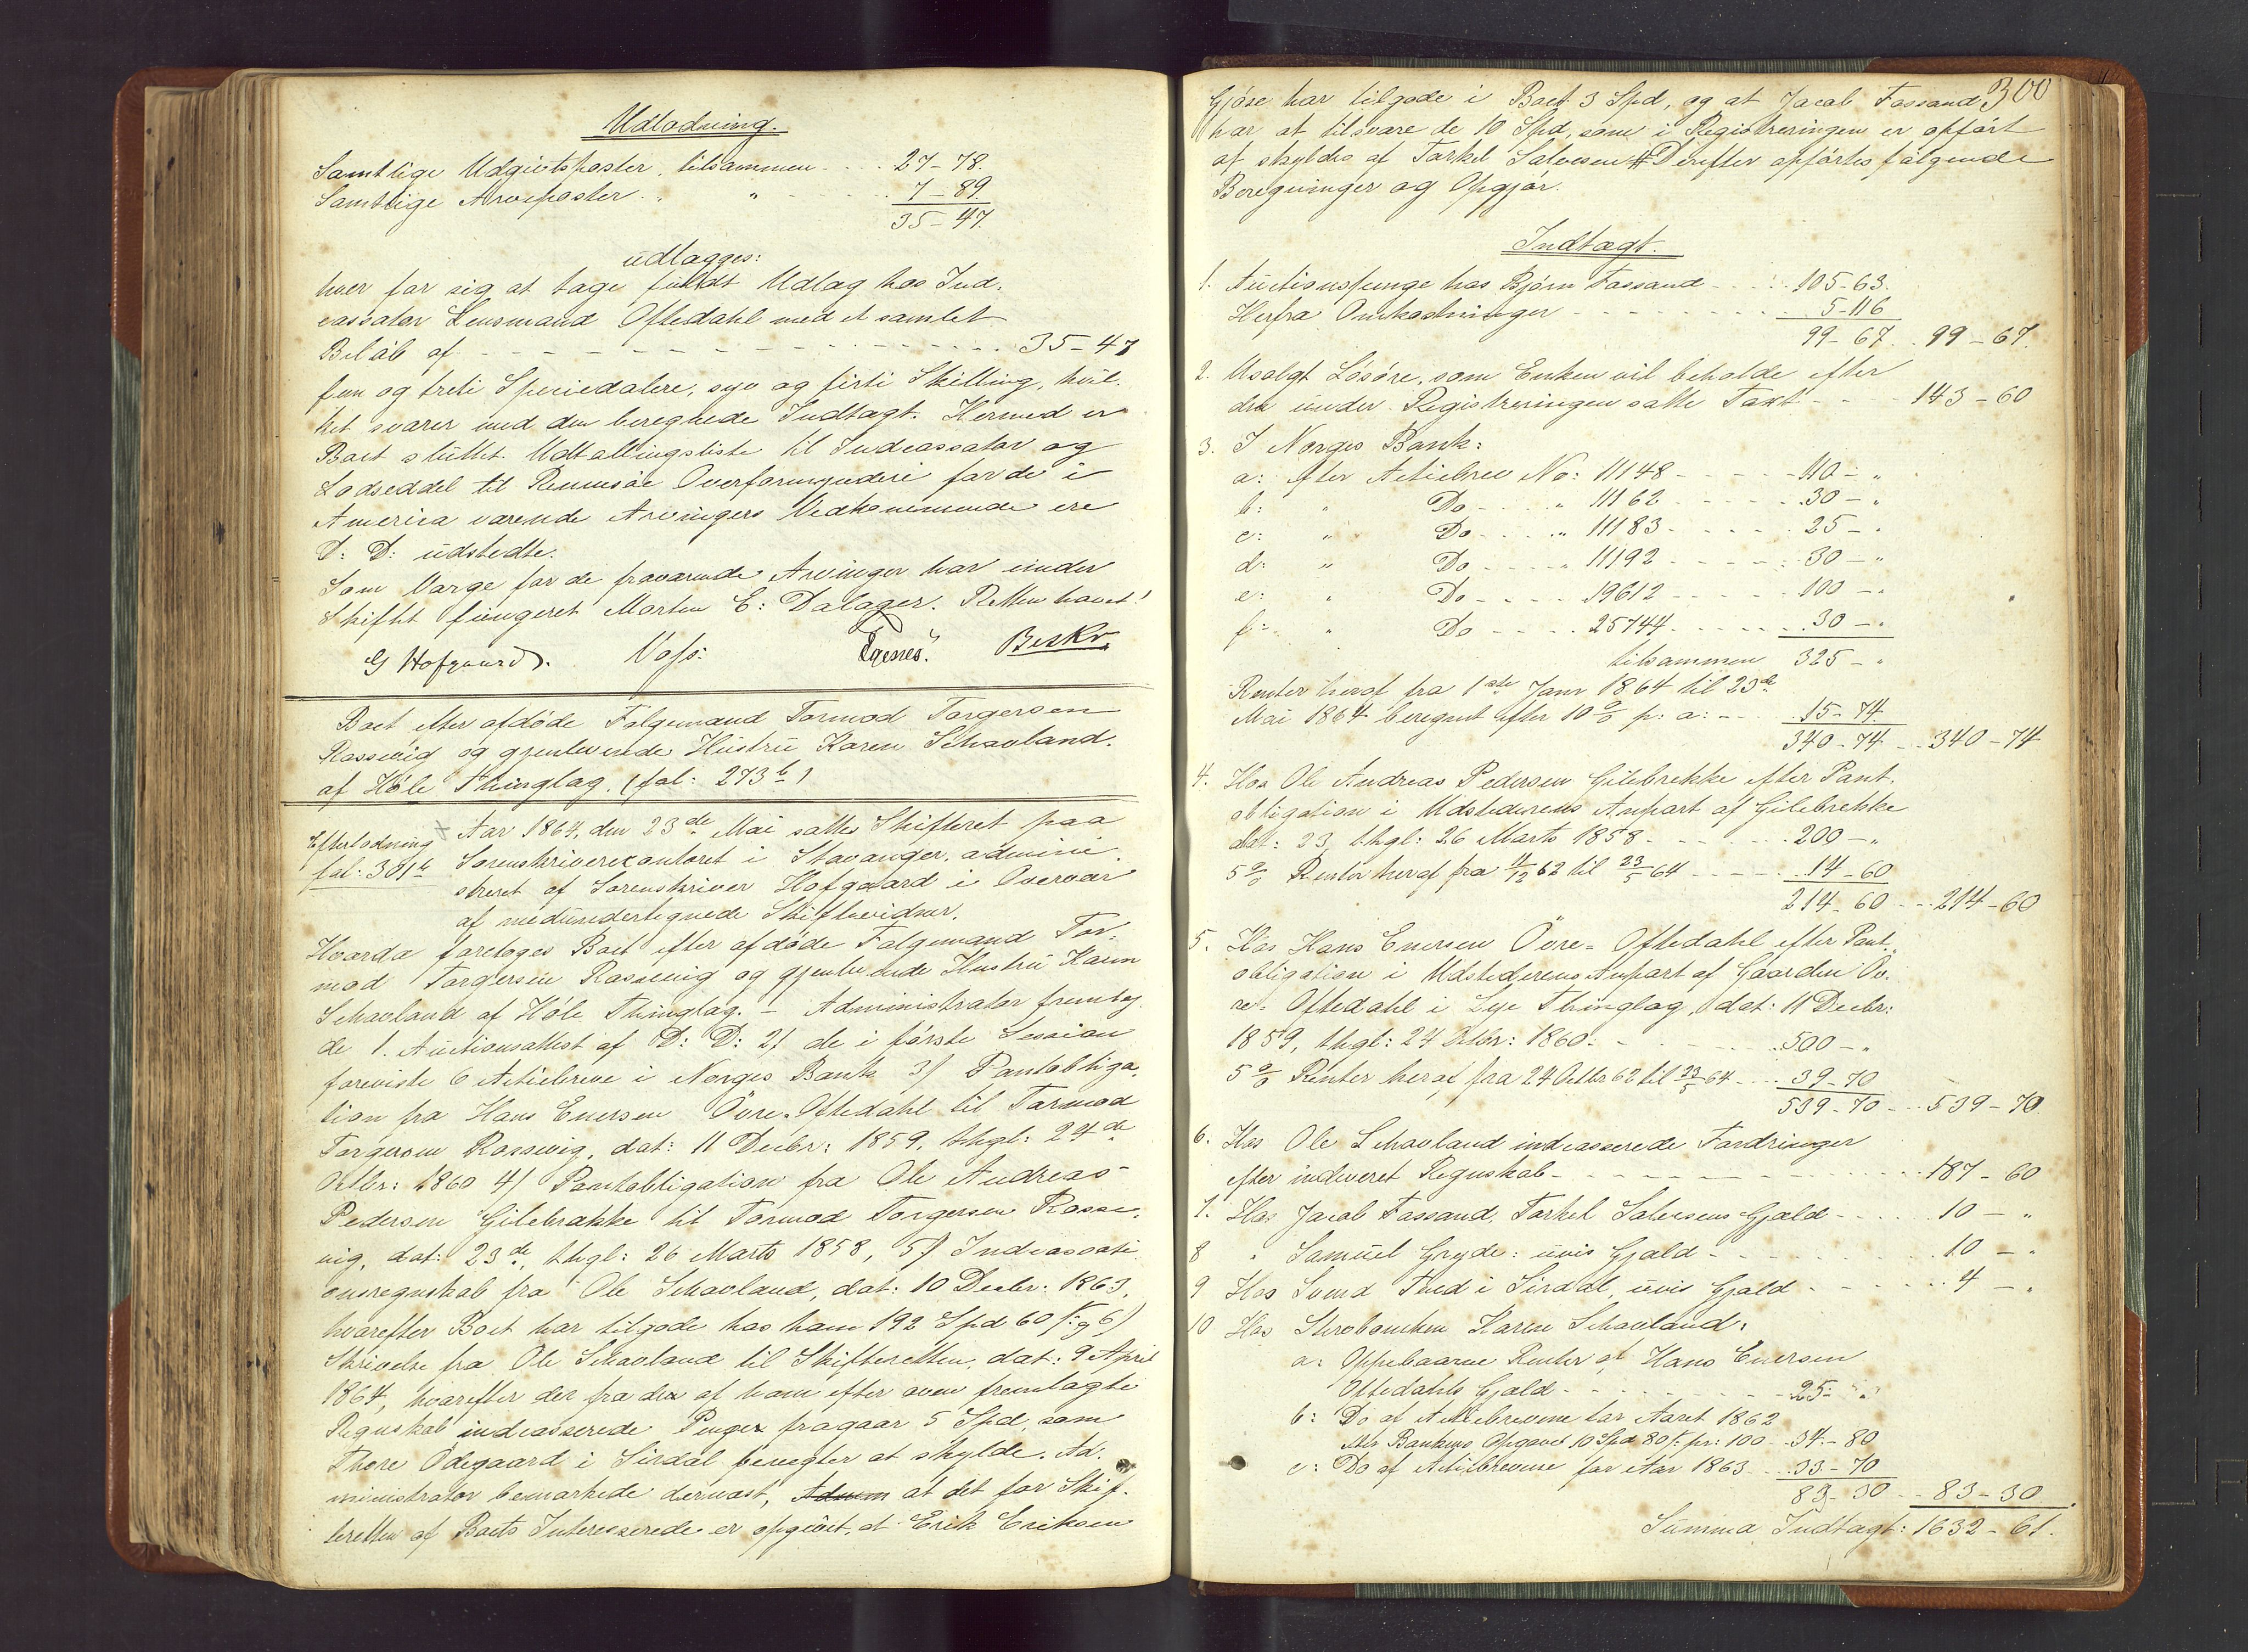 Udlodning.
Samtlige Udgiftsposter, tilsammen - - - - 27-78.
Samtlige Arveposter. „ „ - - - - 7-89.
35-47.
udlægges:
hver for sig at tage fuldt Udlæg hos Ind-
cassator Lensmand Oftedahl med et samlet
Beløb af - - - - - - - - - - 35-47
fem og treti Speciedalere, syv og firti Skilling, hvil-
ket svarer med den beregnede Indtægt. Hermed er
Boet sluttet. Udtallingsliste til Indcassator og
Lodseddel til Rennesøe Overformynderi for de i
America værende Arvingers Vedkommende ere
D: D: udstedte.
Som Værge for de fraværende Arvinger har under
Skiftet fungeret Morten E: Dalager. Retten hævet!
G Hofgaard. Voss: Egenes. Beskr.
Boet efter afdøde Følgemand Tormod Torgersen
Rossevig og gjenlevende Hustrü Karen Schavland.
af Høle Thinglag. (fol: 273 b)
Efterlodning
fol: 301 b
Aar 1864, den 23de Mai sattes Skifteret paa
Sorenskrivercontoret i Stavanger, admini-
streret af Sorenskriver Hofgaard i Overvær
af medundertegnede Skiftevidner.
Hvorda foretoges Boet efter afdøde Følgemand Tor-
mod Torgersen Rossevig og gjenlevende Hustrü Karen
Schavland af Høle Thinglag. - Administrator fremlag-
de 1. Auctionsattest af D: D: 2) de i første Session
foreviste 6 Actiebreve i Norges Bank 3) Pantobliga-
tion fra Hans Enersen Övre-Oftedahl til Tormod
Torgersen Rossevig, dat: 11 Decbr: 1859, thgl: 24de
Octbr: 1860 4) Pantobligation fra Ole Andreas
Pedersen Gilebrække til Tormod Torgersen Rosse-
vig, dat: 23de, thgl: 26 Marts 1858, 5) Indcassati-
onsregnskab fra Ole Schavland, dat: 10 Decbr: 1863,
hvorefter Boet har tilgode hos ham 192 Spd 60 s: og 6)
Skrivelse fra Ole Schavland til Skifteretten, dat: 9 April
1864, hvorefter der fra den af ham efter oven fremlagte
Regnskab indcasserede Penger fragaar 5 Spd, som
Thore Ödegaard i Sirdal benegter at skylde. Ad-
ministrator bemærkede dernæst, Adnem at det for Skif-
teretten af Boets Interesserede er opgivet, at Erik Eriksen
300
Gjöse har tilgode i Boet 3 Spd, og at Jacob Fossand
har at tilsvare de 10 Spd, som i Registreringen er opført
at skyldes af Torkel Salvesen # Derefter opførtes følgende
Beregninger og Opgjør.
Indtægt.
1. Auctionspenge hos Bjørn Fossand - - - 105-63.
Herfra Omkostninger - - - - - - - 5-116
99-67. - 99-67.
2. Usolgt Løsøre, som Enken vil beholde efter
den under Registreringen satte Taxt - - - 143-60
3. I Norges Bank:
a: efter Actiebrev No: 11148 - - - - 110 - „
b: „ Do - - „ 11162 - - - - 30 - „
c: „ Do - - „ 11183 - - - - 25 - „
d: „ Do - - „ 11192 - - - - 30 - „
e: „ Do - - - 19612 - - - - 100 - „
f: „ Do - - - 25744 - - - - 30 - „
tilsammen 325 - „
Renter heraf fra 1ste Janr 1864 til 23de
Mai 1864 beregnet efter 10 % p: a: - - 15-74
340-74 - - 340-74
4. Hos Ole Andreas Pedersen Gilebrekke efter Pant-
obligation i Udstederens Anpart af Gilebrekke
dat: 23, thgl: 26 Marts 1858 - - - - 200 - „
5 % Renter heraf fra 11/12 62 til 23/5 64 - - - 14-60
214-60 - - 214-60
5. Hos Hans Enersen Övre-Oftedahl efter Pant-
obligation i Udstederens Anpart af Gaarden Öv-
re-Oftedahl i Lye Thinglag, dat: 11 Decbr:
1859, thgl: 24 Octbr: 1860. - - - - 500 - „
5 % Renter heraf fra 24 Octbr 62 til 23/5 64 - - 39-70
539-70 - - 539-70.
6. Hos Ole Schavland indcasserede Fordringer
efter indleveret Regnskab - - - - - - 187-60
7. Hos Jacob Fossand, Torkel Salvesens Gjæld - - - 10 - „
8 „ Samuel Gryde: uvis Gjæld - - - - - 10 - „
9 Hos Svend Tved i Sirdal, uvis Gjæld - - - - 4 - „
10 Hos Sterboenken Karen Schavland:
a: Oppebaarne Renter af Hans Enersen
Oftedahls Gjæld - - - - - - 25 - „
b: Do af Actiebrevene for Aaret 1862
efter Bankens Opgave 10 Spd 80 s: pr: 100 - 34-80
c: Do af Actiebrevene for Aar 1863 - - - 33-70
83-30 - - 83-30
Summa Indtægt: 1632-61.